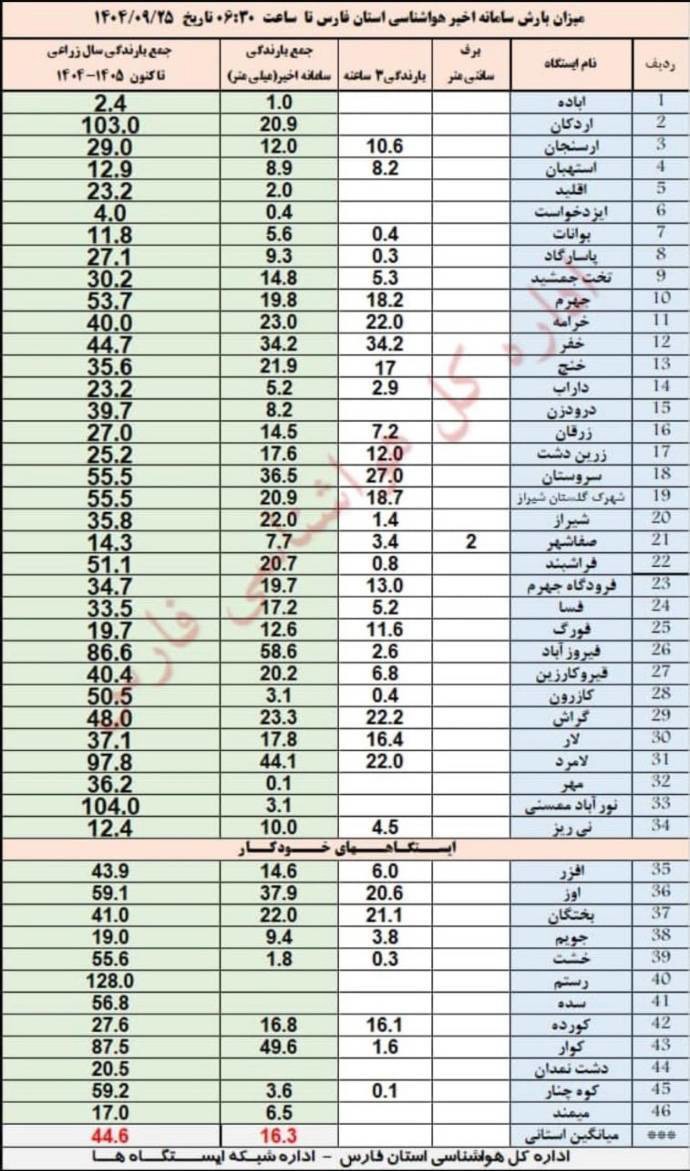 میزان بارش سامانه اخیر هواشناسی استان فارس تا ساعت ۰۶:۳۰ تاریخ ۱۴۰۴/۰۹/۲۵
ردیف | نام ایستگاه | برف سانتی متر | بارندگی ۳ ساعته | جمع بارندگی سامانه اخیر(میلی متر) | جمع بارندگی سال زراعی تا کنون ۱۴۰۵-۱۴۰۴
1 اباده 1.0 2.4
2 اردکان 20.9 103.0
3 ارسنجان 10.6 12.0 29.0
4 استهبان 8.2 8.9 12.9
5 اقلید 2.0 23.2
6 ایزدخواست 0.4 4.0
7 بوانات 0.4 5.6 11.8
8 پاسارگاد 0.3 9.3 27.1
9 تخت جمشید 5.3 14.8 30.2
10 جهرم 18.2 19.8 53.7
11 خرامه 22.0 23.0 40.0
12 خفر 34.2 34.2 44.7
13 خنج 17 21.9 35.6
14 داراب 2.9 5.2 23.2
15 درودزن 8.2 39.7
16 زرقان 7.2 14.5 27.0
17 زرین دشت 12.0 17.6 25.2
18 سروستان 27.0 36.5 55.5
19 شهرک گلستان شیراز 18.7 20.9 55.5
20 شیراز 1.4 22.0 35.8
21 صفاشهر 2 3.4 7.7 14.3
22 فراشبند 0.8 20.7 51.1
23 فرودگاه جهرم 13.0 19.7 34.7
24 فسا 5.2 17.2 33.5
25 فورگ 11.6 12.6 19.7
26 فیروزآباد 2.6 58.6 86.6
27 قیروکارزین 6.8 20.2 40.4
28 کازرون 0.4 3.1 50.5
29 گراش 22.2 23.3 48.0
30 لار 16.4 17.8 37.1
31 لامرد 22.0 44.1 97.8
32 مهر 0.1 36.2
33 نورآباد ممسنی 3.1 104.0
34 نی ریز 4.5 10.0 12.4
ایستگاههای خودکار
35 افزر 6.0 14.6 43.9
36 اوز 20.6 37.9 59.1
37 بختگان 21.1 22.0 41.0
38 جویم 3.8 9.4 19.0
39 خشت 0.3 1.8 55.6
40 رستم 128.0
41 سده 56.8
42 کورده 16.1 16.8 27.6
43 کوار 1.6 49.6 87.5
44 دشت نمدان 20.5
45 کوه چنار 0.1 3.6 59.2
46 میمند 6.5 17.0
*** میانگین استانی 16.3 44.6
اداره کل هواشناسی استان فارس - اداره شبکه ایستگاه ها
اداره کل هواشناسی فارس